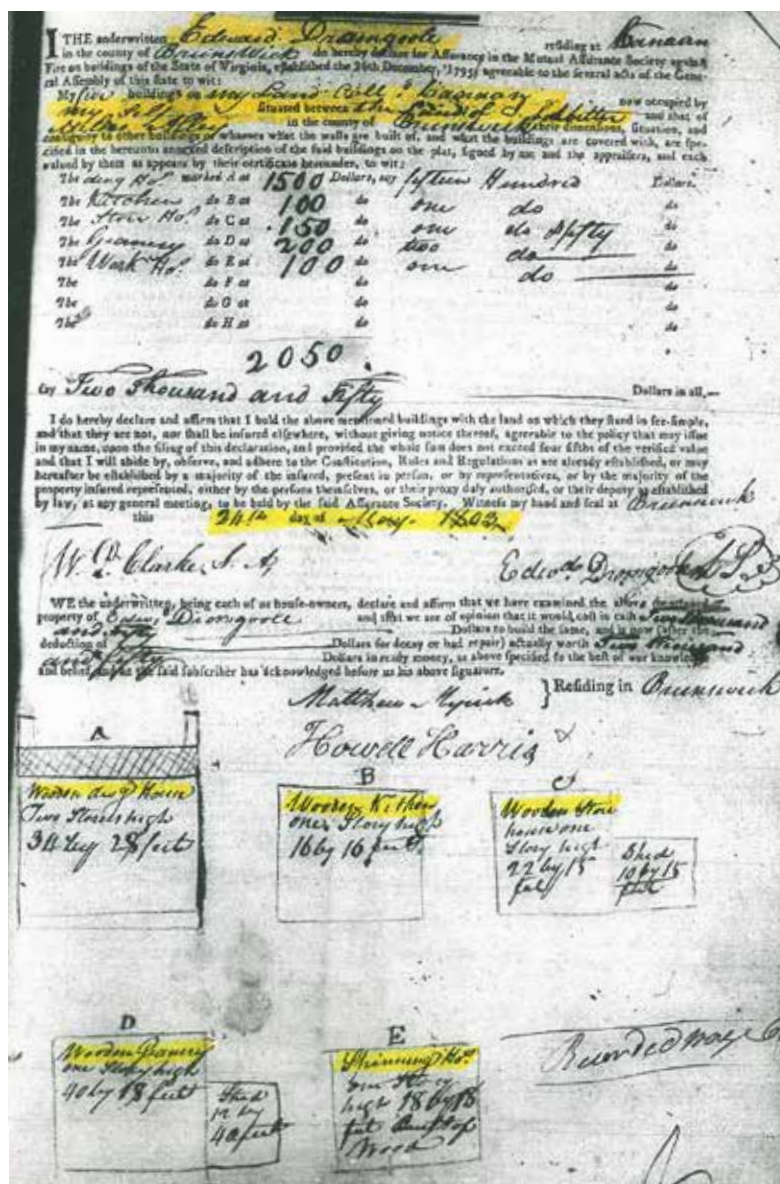 I THE underwritten Edward Dromgoole residing at Canaan
in the county of Brunswick do hereby declare for Assurance in the Mutual Assurance Society against
Fire on buildings of the State of Virginia, established the 26th December, 1795, agreeable to the several acts of the Gene-
ral Assembly of this state to wit:
My five buildings on my Land Call'd Canaan now occupied by
my self situated between the and that of
in the county of Brunswick their dimensions, situation, and
contiguity to other buildings or wharves what the walls are built of, and what the buildings are covered with, are spe-
cified in the hereunto annexed description of the said buildings on the plat, signed by me and the appraisers, and each
valued by them as appears by their certificate hereunder, to wit:
The dwg Ho. marked A at 1500 Dollars, say fifteen Hundred Dollars.
The Kitchen do B at 100 do one do do
The Store Ho. do C at 150 do one do & fifty do
The Granery do D at 200 do two do do
The Work Ho. do E at 100 do one do do
The do F at do do
The do G at do do
The do H at do do
2050.
say Two Thousand and Fifty Dollars in all,—
I do hereby declare and affirm that I hold the above mentioned buildings with the land on which they stand in fee-simple,
and that they are not, nor shall be insured elsewhere, without giving notice thereof, agreeable to the policy that may issue
in my name, upon the filing of this declaration, and provided the whole sum does not exceed four fifths of the verified value
and that I will abide by, observe, and adhere to the Constitution, Rules and Regulations as are already established, or may
hereafter be established by a majority of the insured, present in person, or by representatives, or by the majority of the
property insured represented, either by the persons themselves, or their proxy duly authorised, or their deputy as established
by law, at any general meeting, to be held by the said Assurance Society. Witness my hand and seal at Brunswick
this 24th day of May 1802
Clarke, S. A. Edwd. Dromgoole LS
WE the underwritten, being each of us house-owners, declare and affirm that we have examined the above mentioned
property of Edwd. Dromgoole and that we are of opinion that it would cost in cash Two thousand
and fifty Dollars to build the same, and is now (after the
deduction of Dollars for decay or bad repair) actually worth Two thousand
and fifty Dollars in ready money, as above specified to the best of our knowledge
and belief, and as the said subscriber has acknowledged before us his above signature.
Matthew Myrick } Residing in Brunswick
Howell Harris
A
Wooden dwg House
Two Stories high
34 by 28 feet
B
Wooden Kitchen
one Story high
16 by 16 feet
C
Wooden Store
house one
Story high
22 by 15
feet
Shed
10 by 15
feet
D
Wooden Granery
one Story high
40 by 18 feet
Shed
12 by
40 feet
E
Spinning Ho.
one Story
high 18 by 18
feet
Wood
Recorded